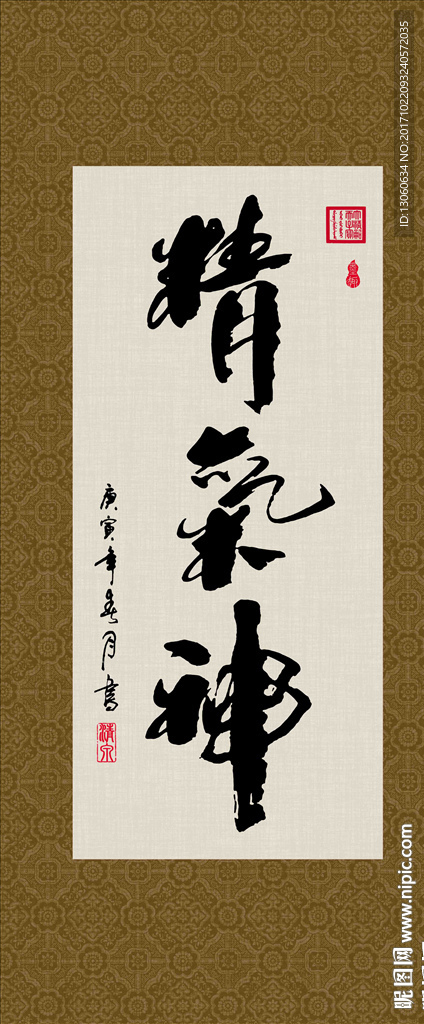 精氣神
庚寅年春月書
清泉
ID:13060634 NO:20171022093240572035
昵图网 www.nipic.com